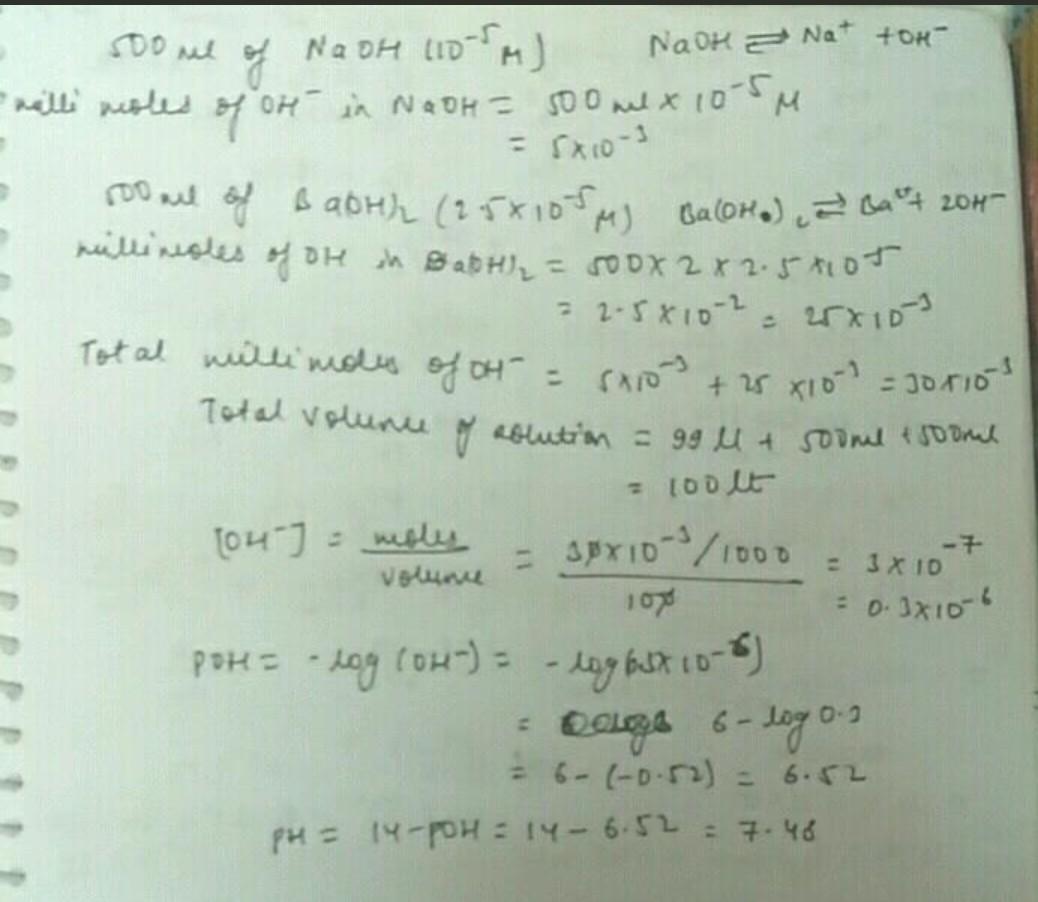 500 ml of NaOH (10⁻⁵ M) NaOH ⇌ Na⁺ + OH⁻
milli moles of OH⁻ in NaOH = 500 ml × 10⁻⁵ M
= 5×10⁻³
500 ml of Ba(OH)₂ (2.5×10⁻⁵ M) Ba(OH)₂ ⇌ Ba⁺⁺ + 2OH⁻
millimoles of OH in Ba(OH)₂ = 500 × 2 × 2.5 × 10⁻⁵
= 2.5 × 10⁻² = 25 × 10⁻³
Total millimoles of OH⁻ = 5×10⁻³ + 25 × 10⁻³ = 30×10⁻³
Total volume of solution = 99 lt + 500 ml + 500 ml
= 100 lt
[OH⁻] = moles / volume = 30×10⁻³/1000 / 100 = 3 × 10⁻⁷
= 0.3×10⁻⁶
pOH = -log (OH⁻) = -log (0.3× 10⁻⁶)
= 6 - log 0.3
= 6 - (-0.52) = 6.52
pH = 14 - pOH = 14 - 6.52 = 7.48